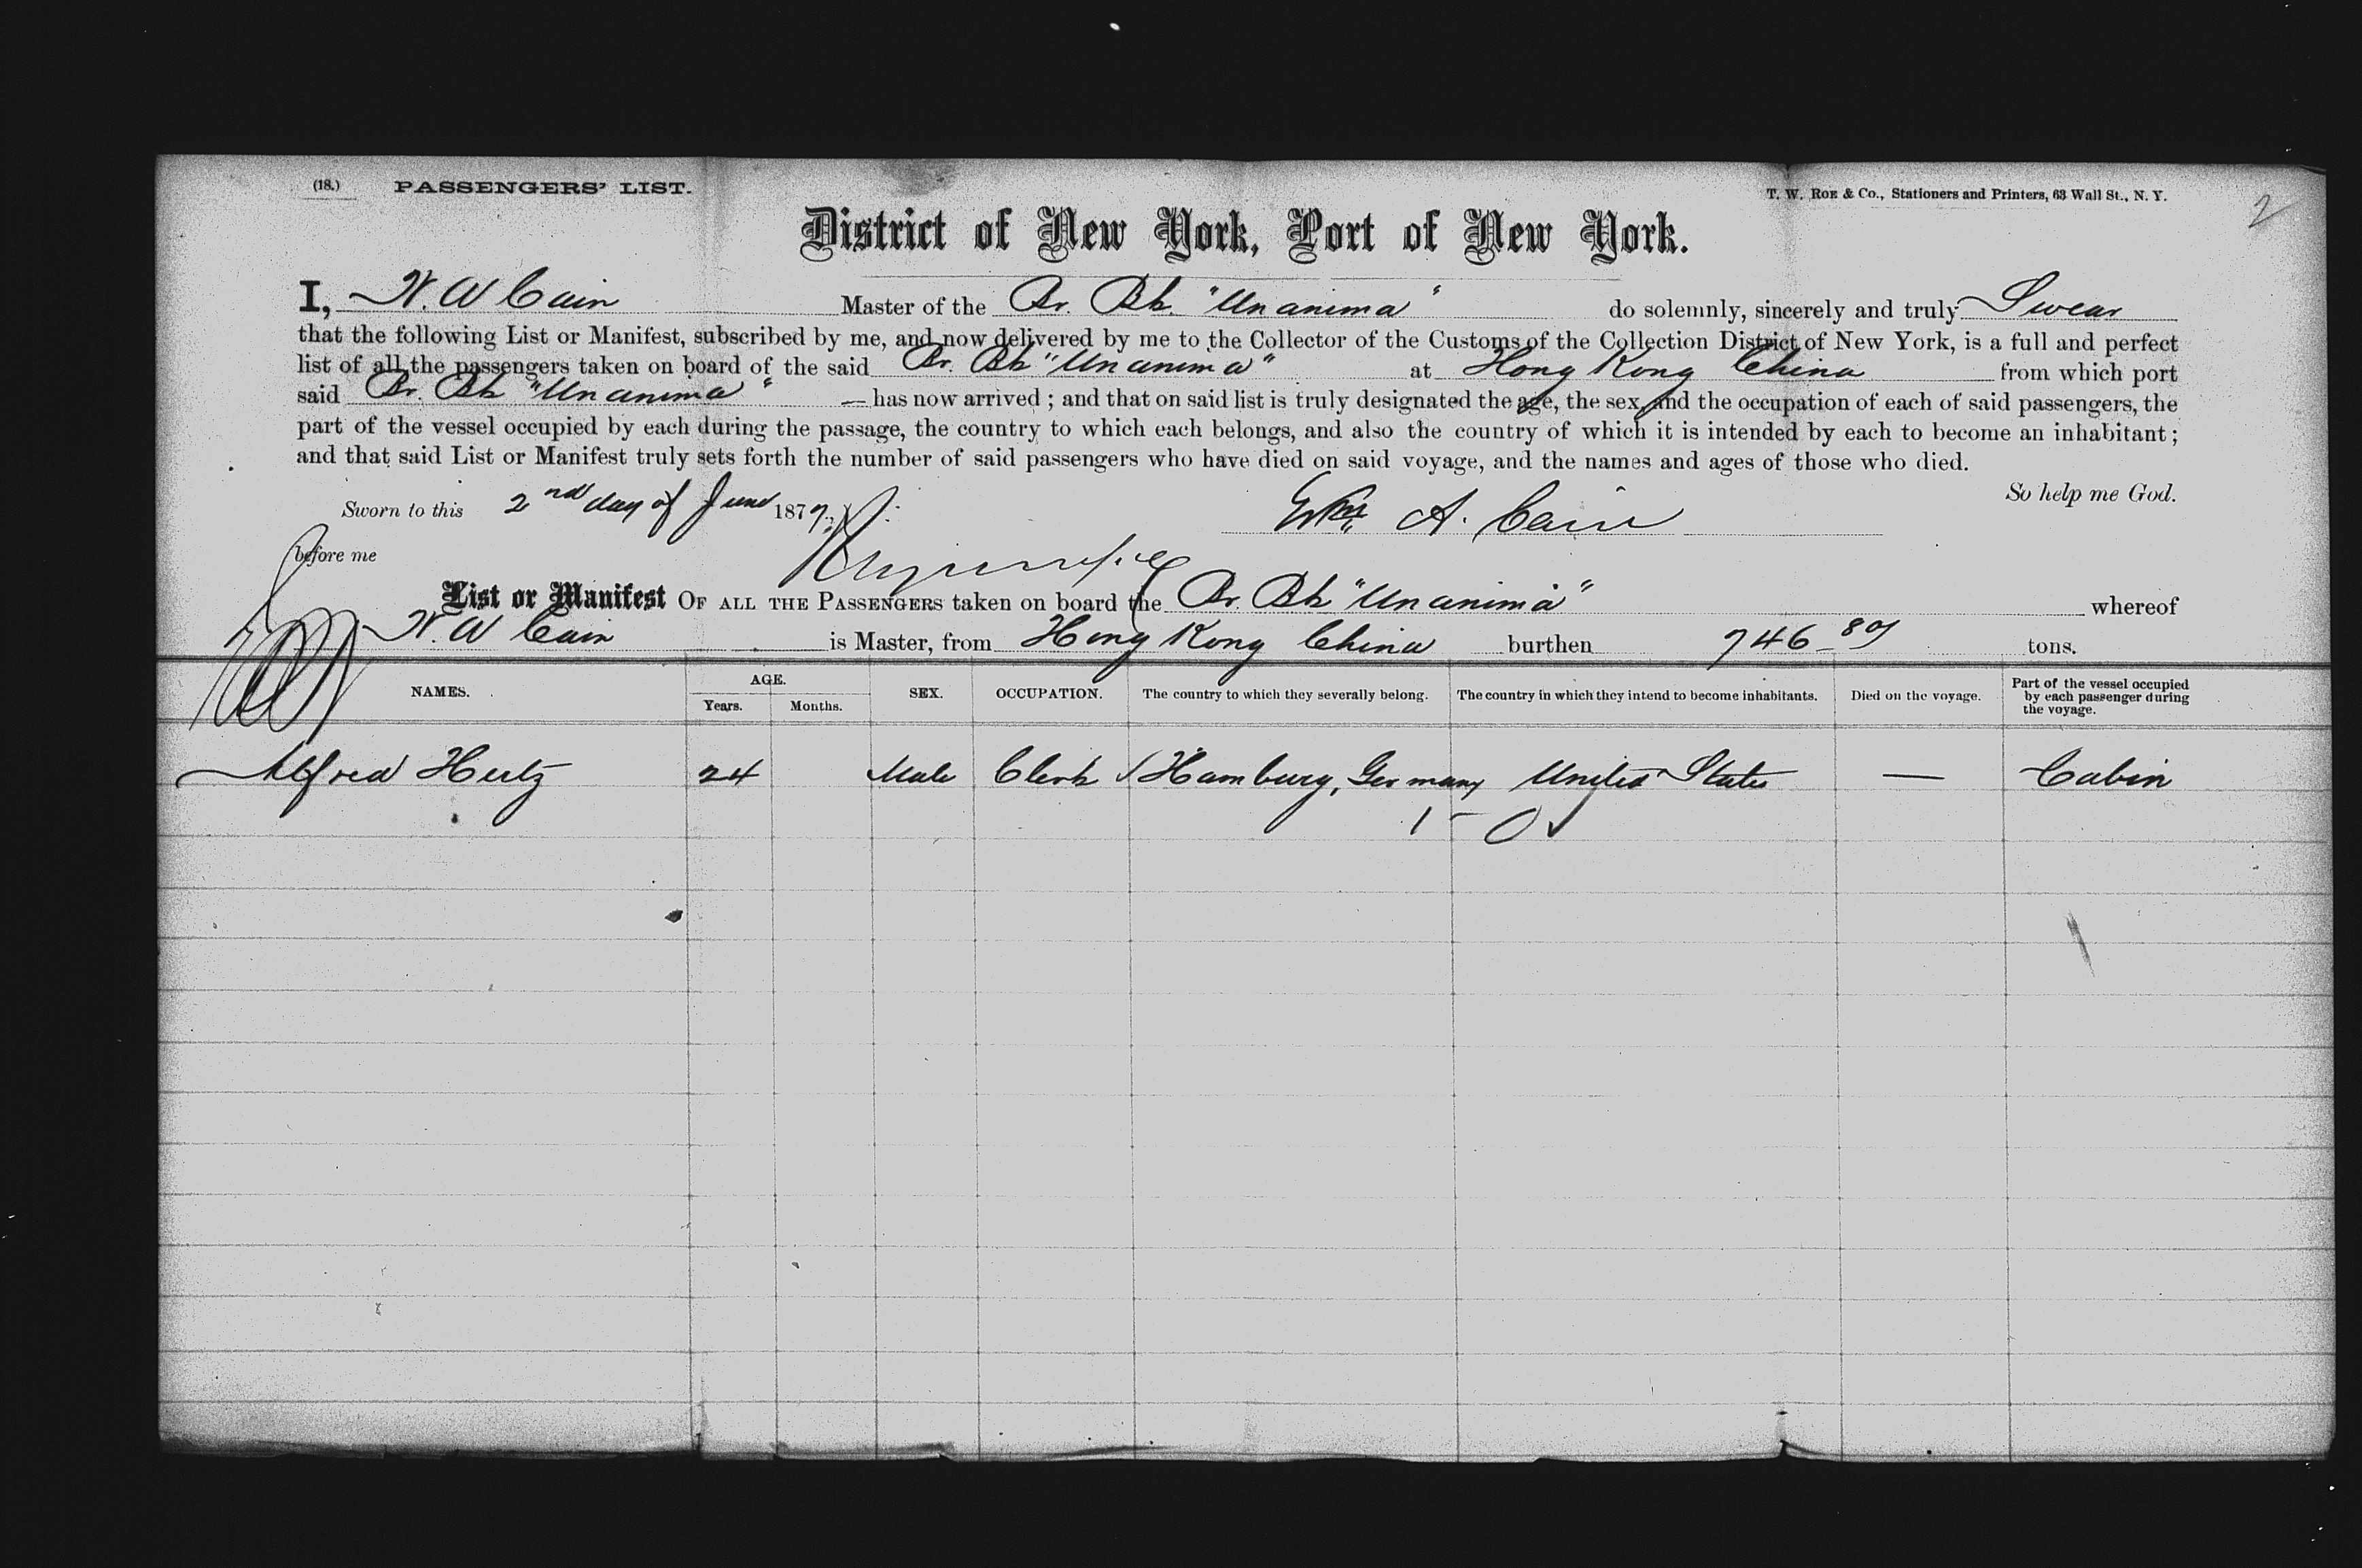 (18.) PASSENGERS' LIST. T. W. ROE & Co., Stationers and Printers, 63 Wall St., N. Y. 2
District of New York, Port of New York.
I, W. A Cain Master of the Br. Bk. "Unanima" do solemnly, sincerely and truly Swear
that the following List or Manifest, subscribed by me, and now delivered by me to the Collector of the Customs of the Collection District of New York, is a full and perfect
list of all the passengers taken on board of the said Br. Bk "Unanima" at Hong Kong China from which port
said Br. Bk "Unanima" — has now arrived ; and that on said list is truly designated the age, the sex, and the occupation of each of said passengers, the
part of the vessel occupied by each during the passage, the country to which each belongs, and also the country of which it is intended by each to become an inhabitant ;
and that said List or Manifest truly sets forth the number of said passengers who have died on said voyage, and the names and ages of those who died.
So help me God.
Sworn to this 2nd day of June 1879. Wm A. Cain
before me
List or Manifest OF ALL THE PASSENGERS taken on board the Br. Bk "Unanima" whereof
W. A Cain is Master, from Hong Kong China burthen 746 89 tons.
NAMES. AGE. Years. Months. SEX. OCCUPATION. The country to which they severally belong. The country in which they intend to become inhabitants. Died on the voyage. Part of the vessel occupied by each passenger during the voyage.
Alfred Hertz 24 Male Clerk Hamburg, Germany United States — Cabin
1 - 0 ✓